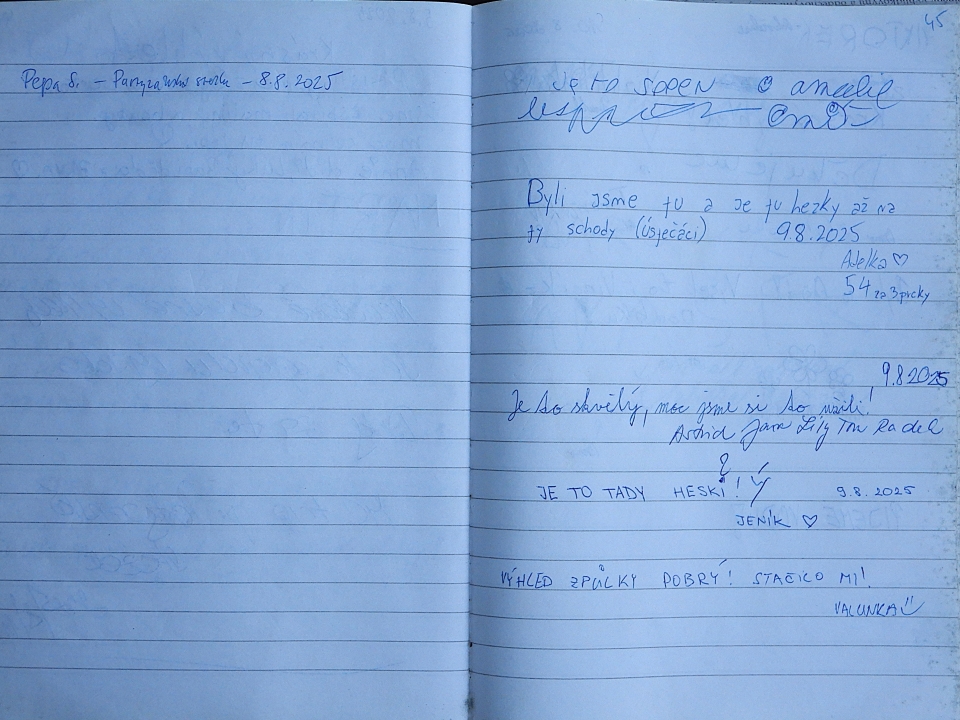 Pepa S. – Partyzánská stezka – 8.8.2025
45
Je to sopen
Byli jsme tu a je tu hezky až na
ty schody (úsječéci) 9.8.2025
Adelka ♡
54 za 3 prcky
9.8 2025
Je to skvělý, moc jsme si to užili!
Astrid Jam Lily Tom Radek
?
JE TO TADY HESKÍ! Ý 9.8.2025
JENÍK ♡
VÝHLED ZPŮLKY POBRÝ! STAČILO MI!
VALUNKA